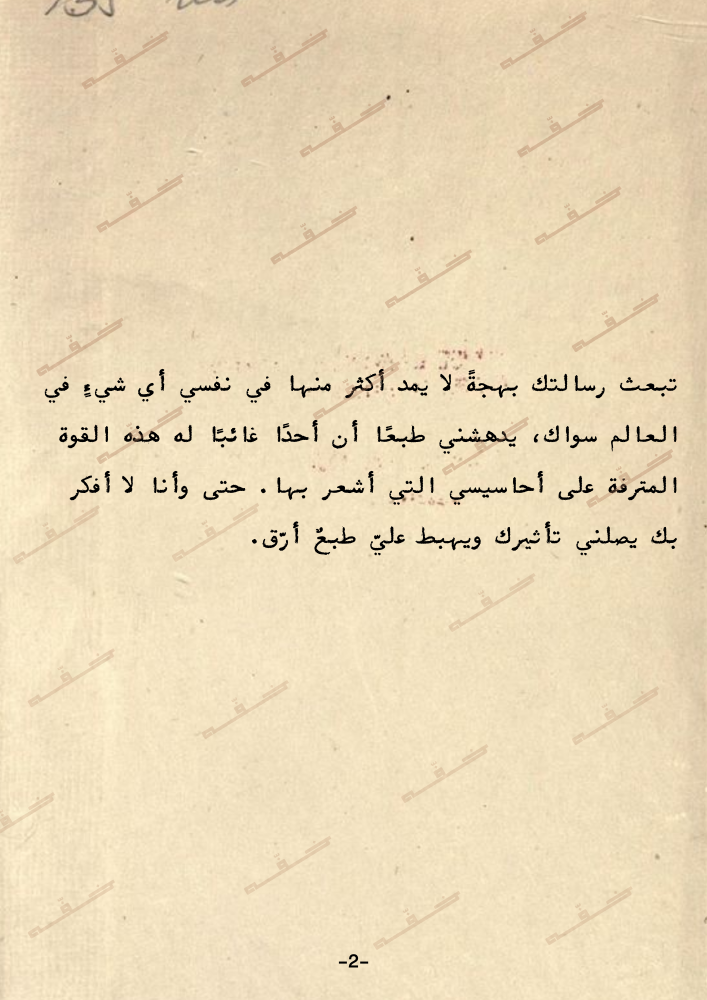 تبعث رسالتك بهجةً لا يمد أكثر منها في نفسي أي شيءٍ في
العالم سواك، يدهشني طبعًا أن أحدًا غائبًا له هذه القوة
المترفة على أحاسيسي التي أشعر بها. حتى وأنا لا أفكر
بك يصلني تأثيرك ويهبط عليّ طبعٌ أرّق.
-2-